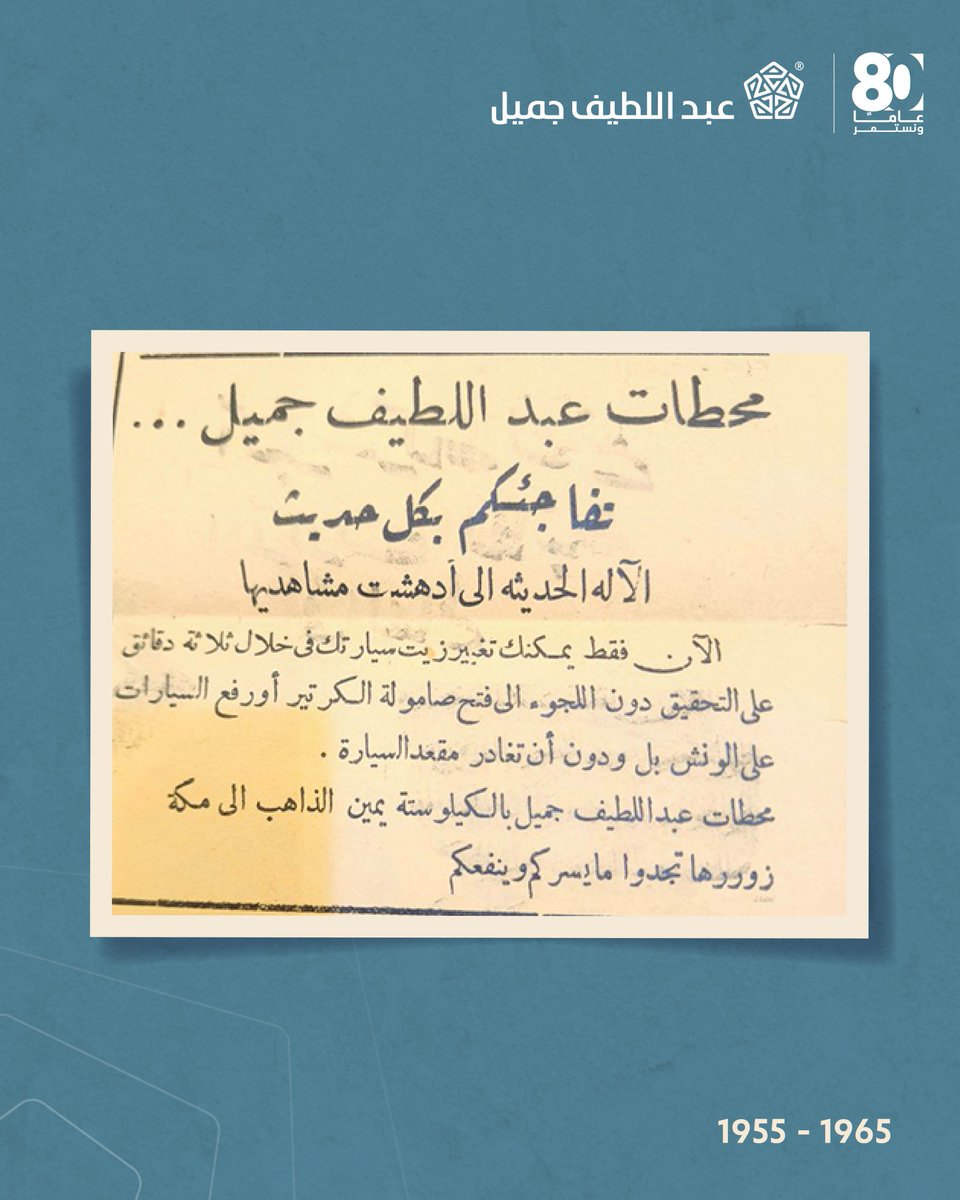 80
عامًا
ونستمر
عبد اللطيف جميل
®
محطات عبد اللطيف جميل ...
تفاجئكم بكل حديث
الآله الحديثه الى أدهشت مشاهديها
الآن فقط يمكنك تغيير زيت سيارتك فى خلال ثلاثة دقائق
على التحقيق دون اللجوء الى فتح صامولة الكرتير أو رفع السيارات
على الونش بل ودون أن تغادر مقعد السيارة .
محطات عبد اللطيف جميل بالكيلو ستة يمين الذاهب الى مكة
زوروها تجدوا ما يسركم وينفعكم
1955 - 1965